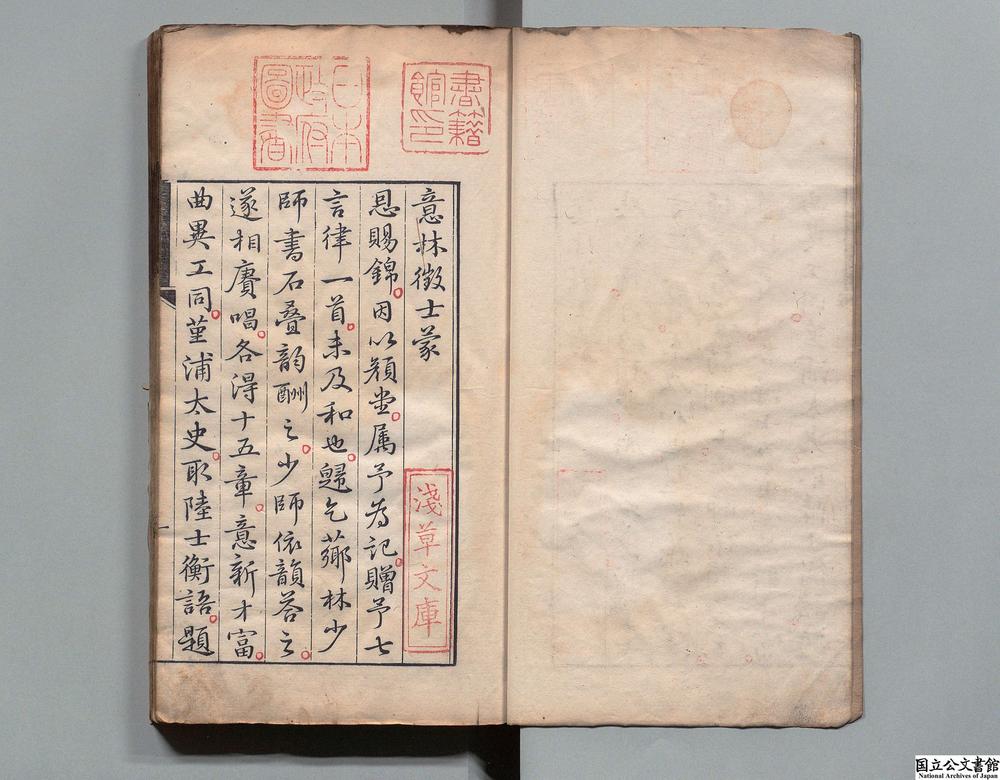 書籍館印
日本政府圖書
意林徵士蒙
淺草文庫
恩賜錦。因以顏堂。属予為記。贈予七
言律一首。未及和也。歸乞薌林少
師書石叠韵酬之。少師依韻荅之。
遂相賡唱。各得十五章。意新才富。
曲異工同。堇浦太史。取陸士衡語。題
国立公文書館
National Archives of Japan